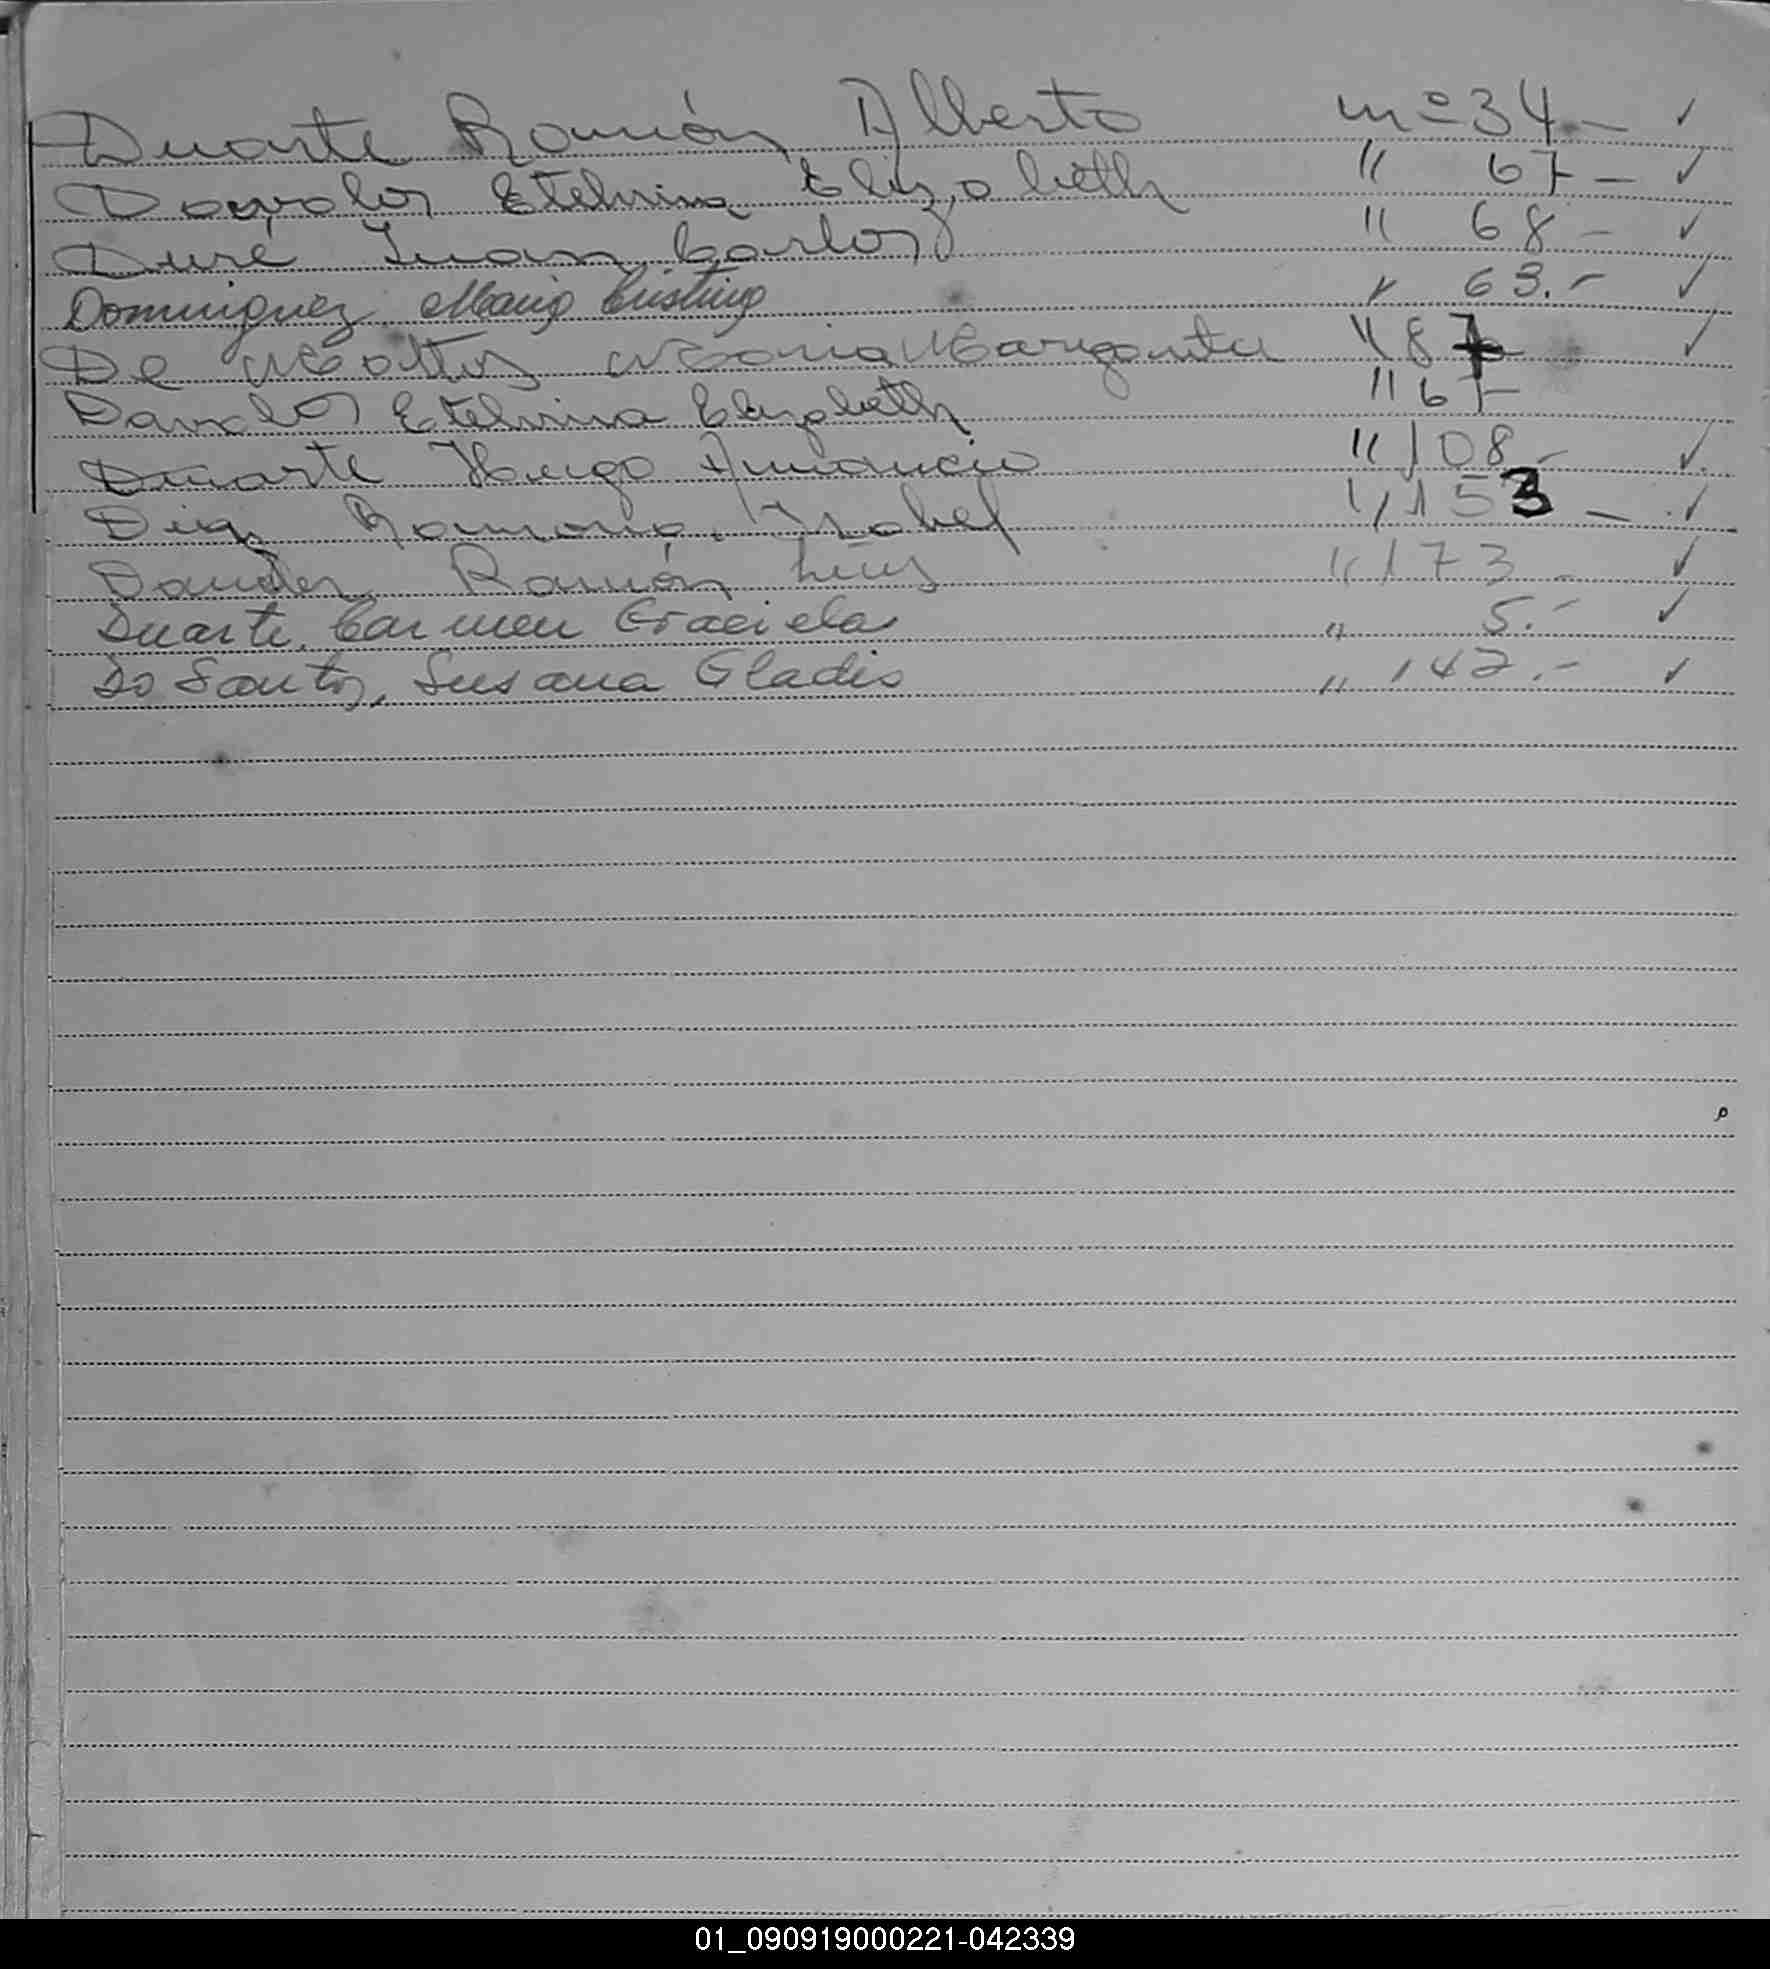 Duarte Ramón Alberto nº 34 - ✓
Davalos Etelvina Elizabeth " 67 - ✓
Duré Juan Carlos " 68 - ✓
Dominguez Maria Cristina " 63.- ✓
De Mattos Maria Margarita " 87 ✓
Davalos Etelvina Elizabeth " 67-
Duarte Hugo Amancio " 108 - ✓
Diaz Ramona Isabel " 153 - ✓
Ramón Luis " 173 - ✓
Duarte, Carmen Graciela " 5.- ✓
Do Santos, Susana Gladis " 147.- ✓
01_090919000221-042339